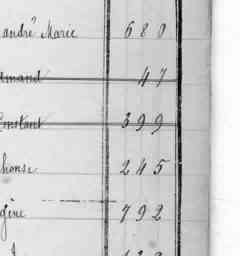 andré Marie 680
mand 47
Constant 399
phonse 245
gène 792